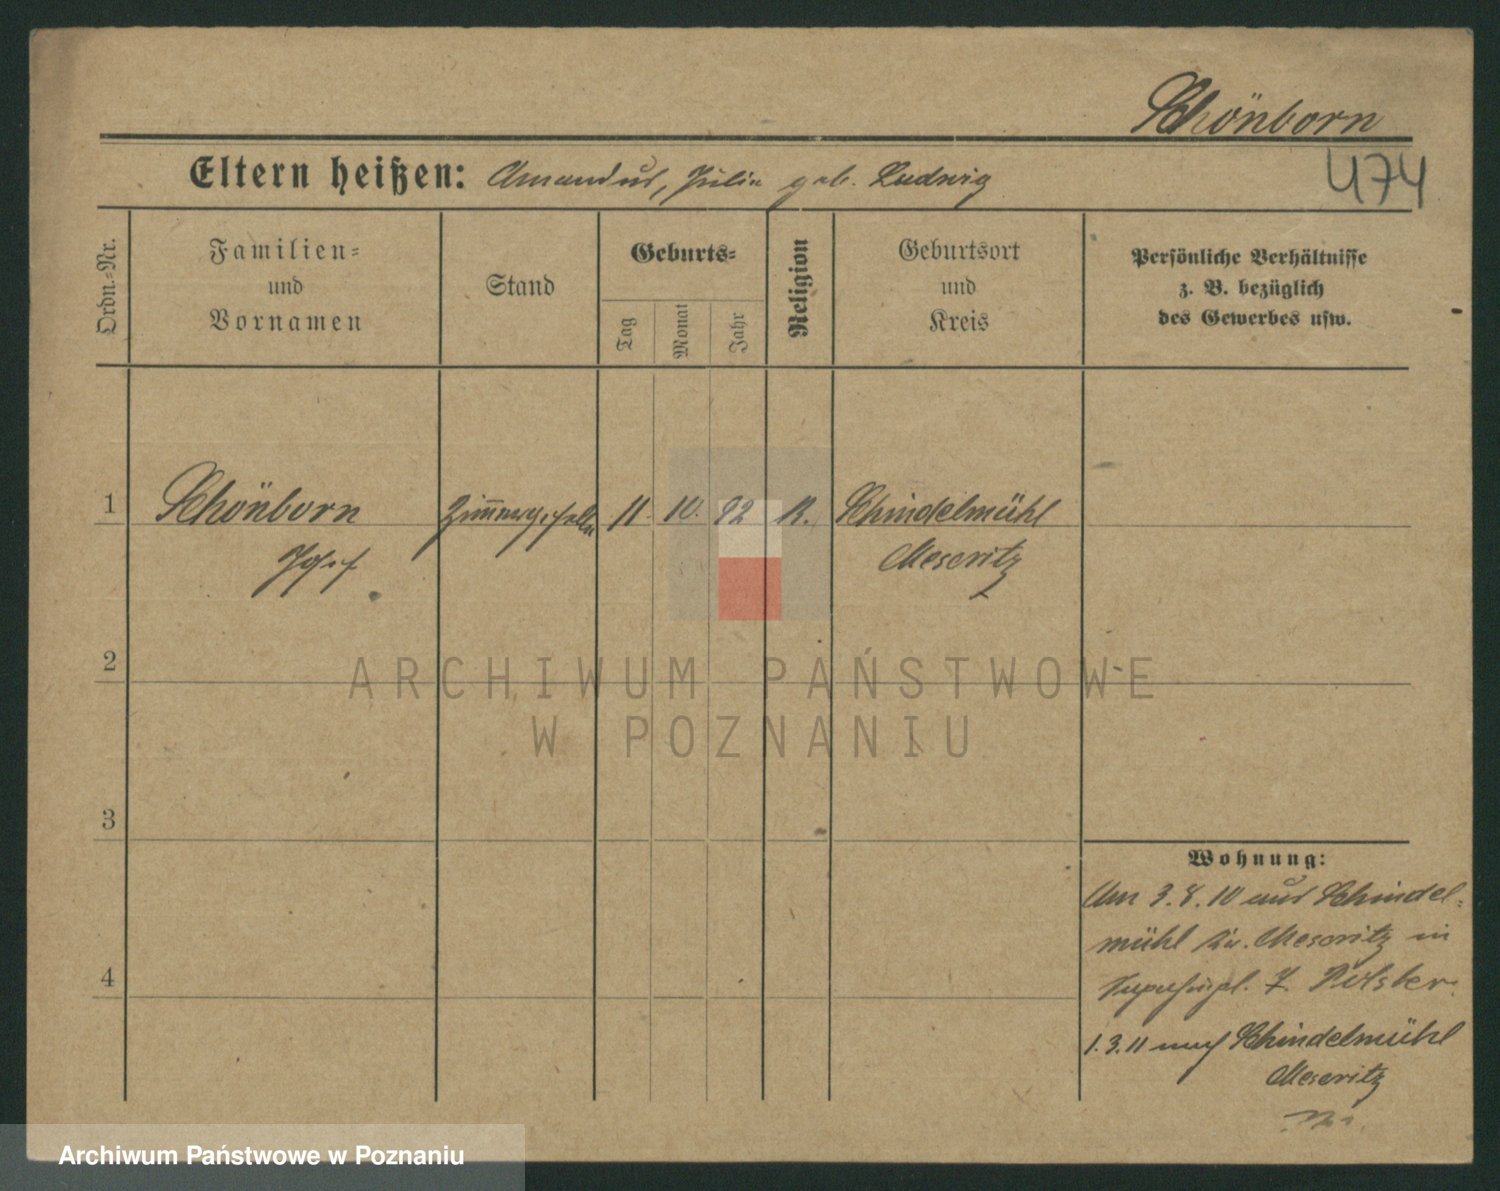 Schönborn
474
Eltern heißen: Amandus, Julia geb. Ludwig
Ordn.-Nr.
Familien-
und
Vornamen
Stand
Geburts-
Tag
Monat
Jahr
Religion
Geburtsort
und
Kreis
Persönliche Verhältnisse
z. B. bezüglich
des Gewerbes usw.
1 Schönborn Zimmergeselle 11. 10. 92 K. Schindelmühl
Josef Meseritz
2
ARCHIWUM PAŃSTWOWE
W POZNANIU
3
Wohnung:
Am 3.8.10 aus Schindel-
mühl Kr. Meseritz in
4
J. Polster
1.3.11 nach Schindelmühl
Meseritz
Archiwum Państwowe w Poznaniu